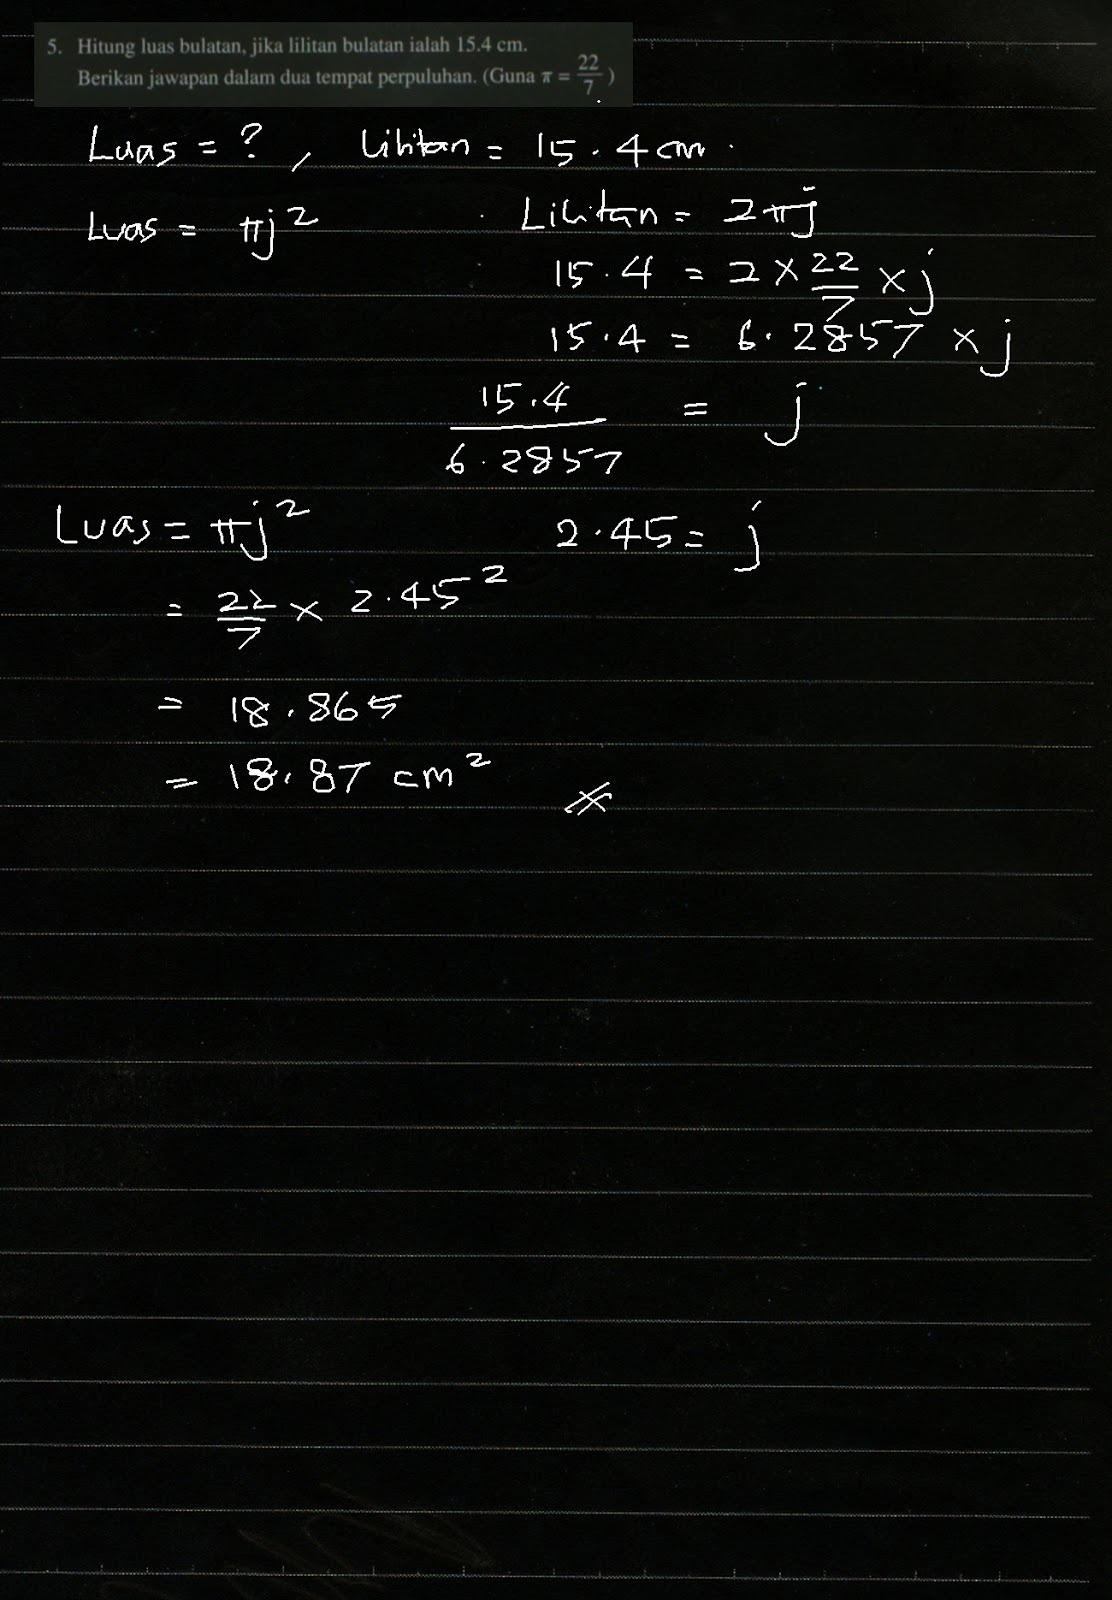 5. Hitung luas bulatan, jika lilitan bulatan ialah 15.4 cm.
Berikan jawapan dalam dua tempat perpuluhan. (Guna π = 22/7)
Luas = ? , Lilitan = 15.4 cm.
Luas = πj²
Lilitan = 2πj
15.4 = 2 × 22/7 × j
15.4 = 6.2857 × j
15.4/6.2857 = j
2.45 = j
Luas = πj²
= 22/7 × 2.45²
= 18.865
= 18.87 cm²